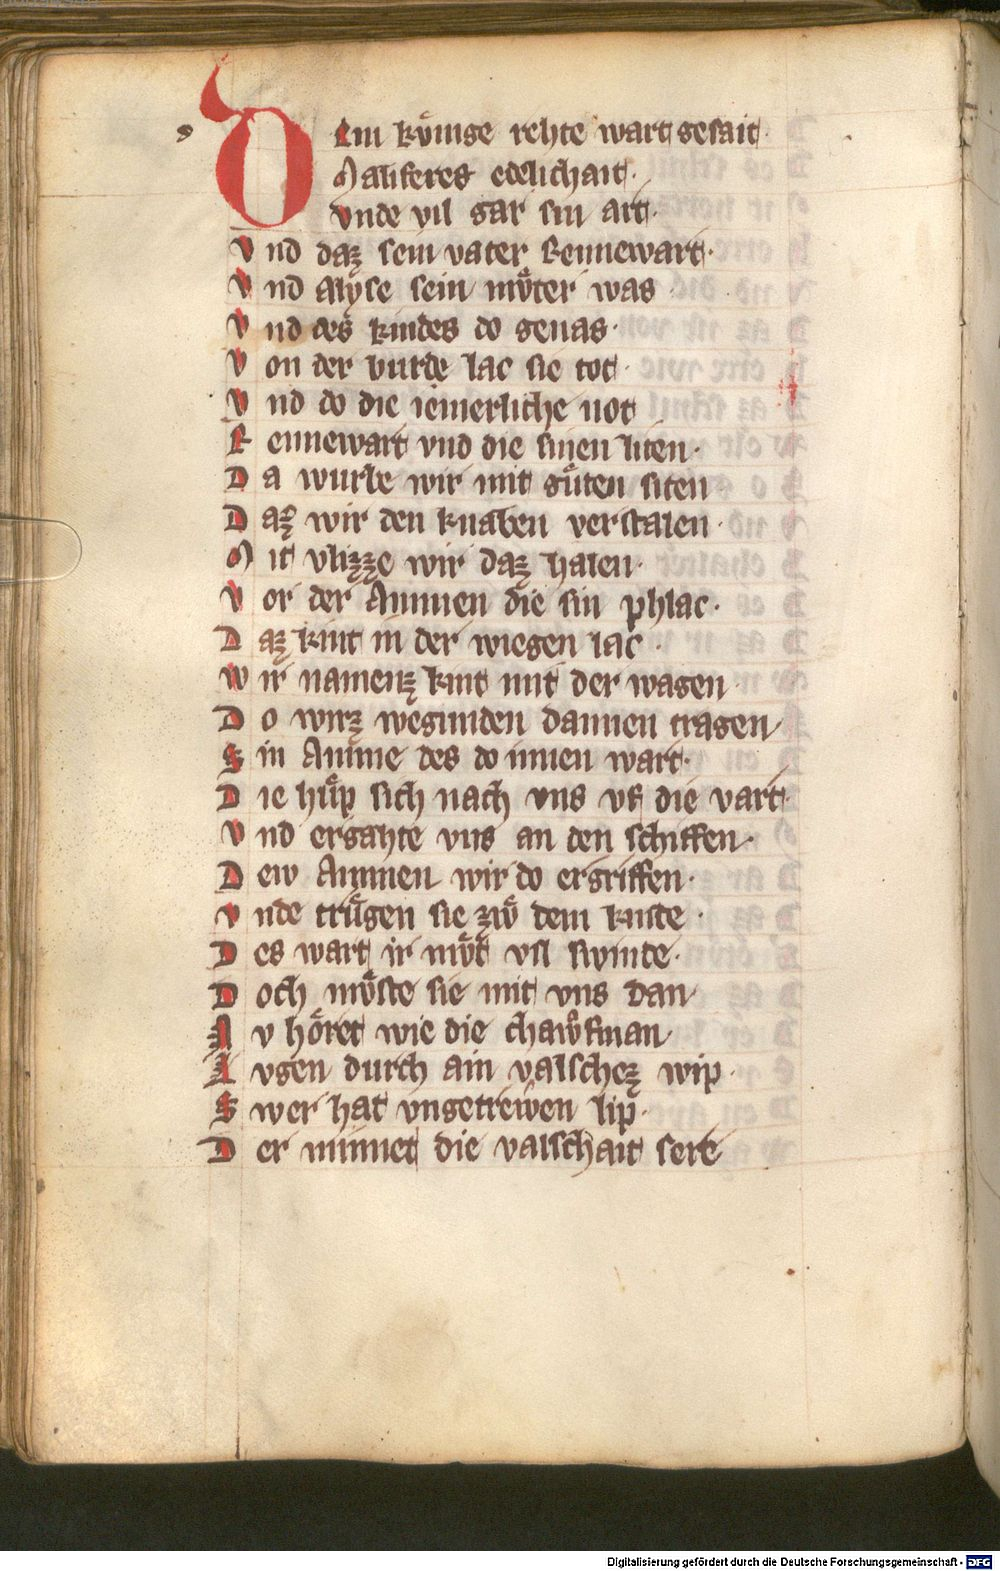 Dem kv̊nige rehte wart gesait·
Maliferes edelichait·
vnde vil gar sin art·
Vnd daz sein vater Rennewart·
Vnd Alyse sein mv̊ter was
Vnd des kindes do genas·
Von der burde lac sie tot·
Vnd do die iemerliche not
Rennewart vnd die sinen liten·
Da wurbe wir mit gůten siten
Daz wir den knaben verstalen·
Mit vlizze wir daz halen·
Vor der Ammen die sin phlac·
Daz kint in der wiegen lac·
Wir namenz kint mit der wagen·
Do wirz wegunden dannen tragen
Sin Amme des do innen wart·
Die hůp sich nach vns vf die vart·
Vnd ergahte vns an den schiffen·
Dew Ammen wir do ergriffen·
Vnde trůgen sie zẘ dem kinde·
Des wart ir mv̊t vil swinde·
Doch mv̊ste sie mit vns dan
Nv hǒret wie die chawfman
Lvgen durch ain valschez wip·
Swer hat vngetrewen lip·
Der minnet die valschait sere
Digitalisierung gefördert durch die Deutsche Forschungsgemeinschaft - DFG